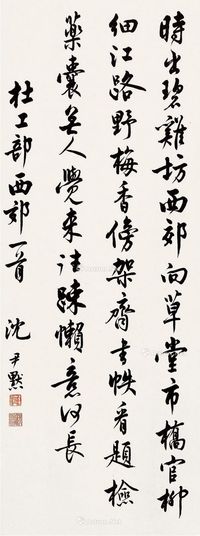 時出碧雞坊西郊向草堂市橋官柳
細江路野梅香傍架齊書帙看題檢
藥囊無人覺來往踈懶意何長
杜工部西郊一首 沈尹默